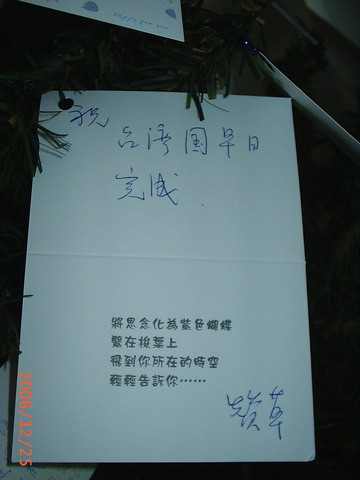 祝
台灣國早日
完成
將思念化為紫色蝴蝶
繫在梭葉上
飛到你所在的時空
輕輕告訴你⋯⋯
2006/12/25